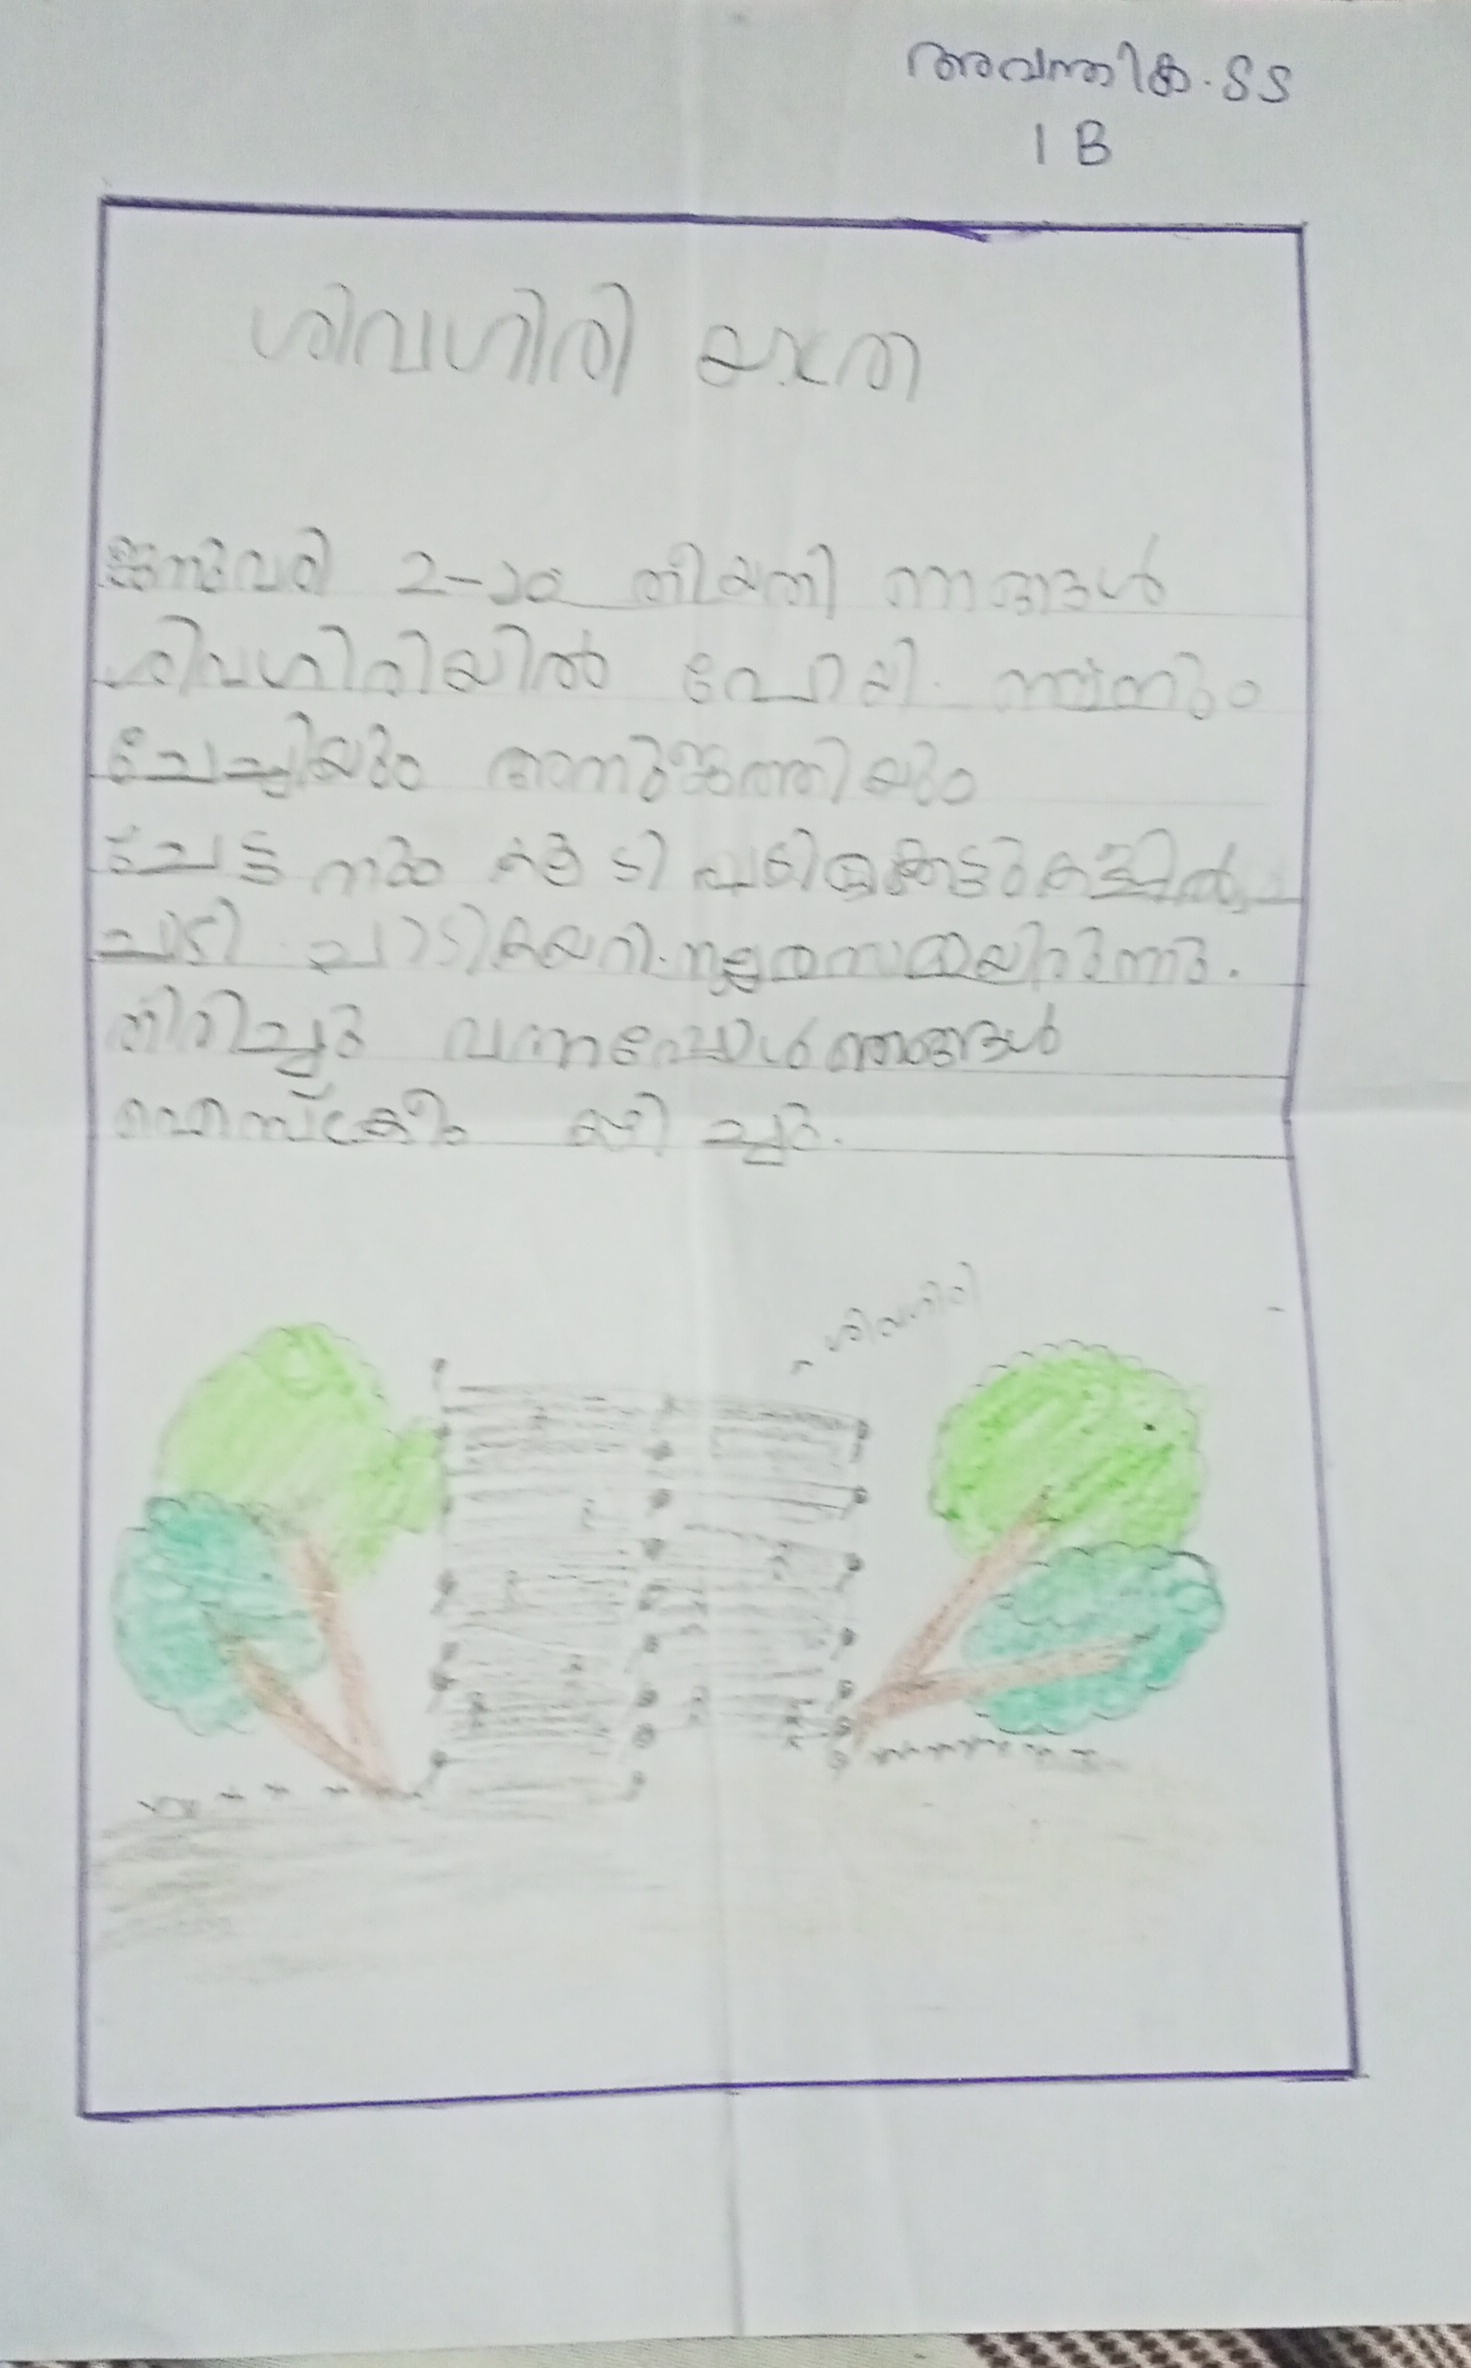 അവന്തിക. S S
1 B
ശിവഗിരി യാത്ര
ജനുവരി 2-ാം തീയതി ഞങ്ങൾ
ശിവഗിരിയിൽ പോയി. ഞാനും
ചേച്ചിയും അനുജത്തിയും
ചേട്ടനും കൂടി പടിക്കെട്ടുകളിൽ
ചാടി ചാടി കയറി. നല്ല രസമായിരുന്നു.
തിരിച്ചു വന്നപ്പോൾ ഞങ്ങൾ
ഐസ്ക്രീം കുടിച്ചു.
ശിവഗിരി